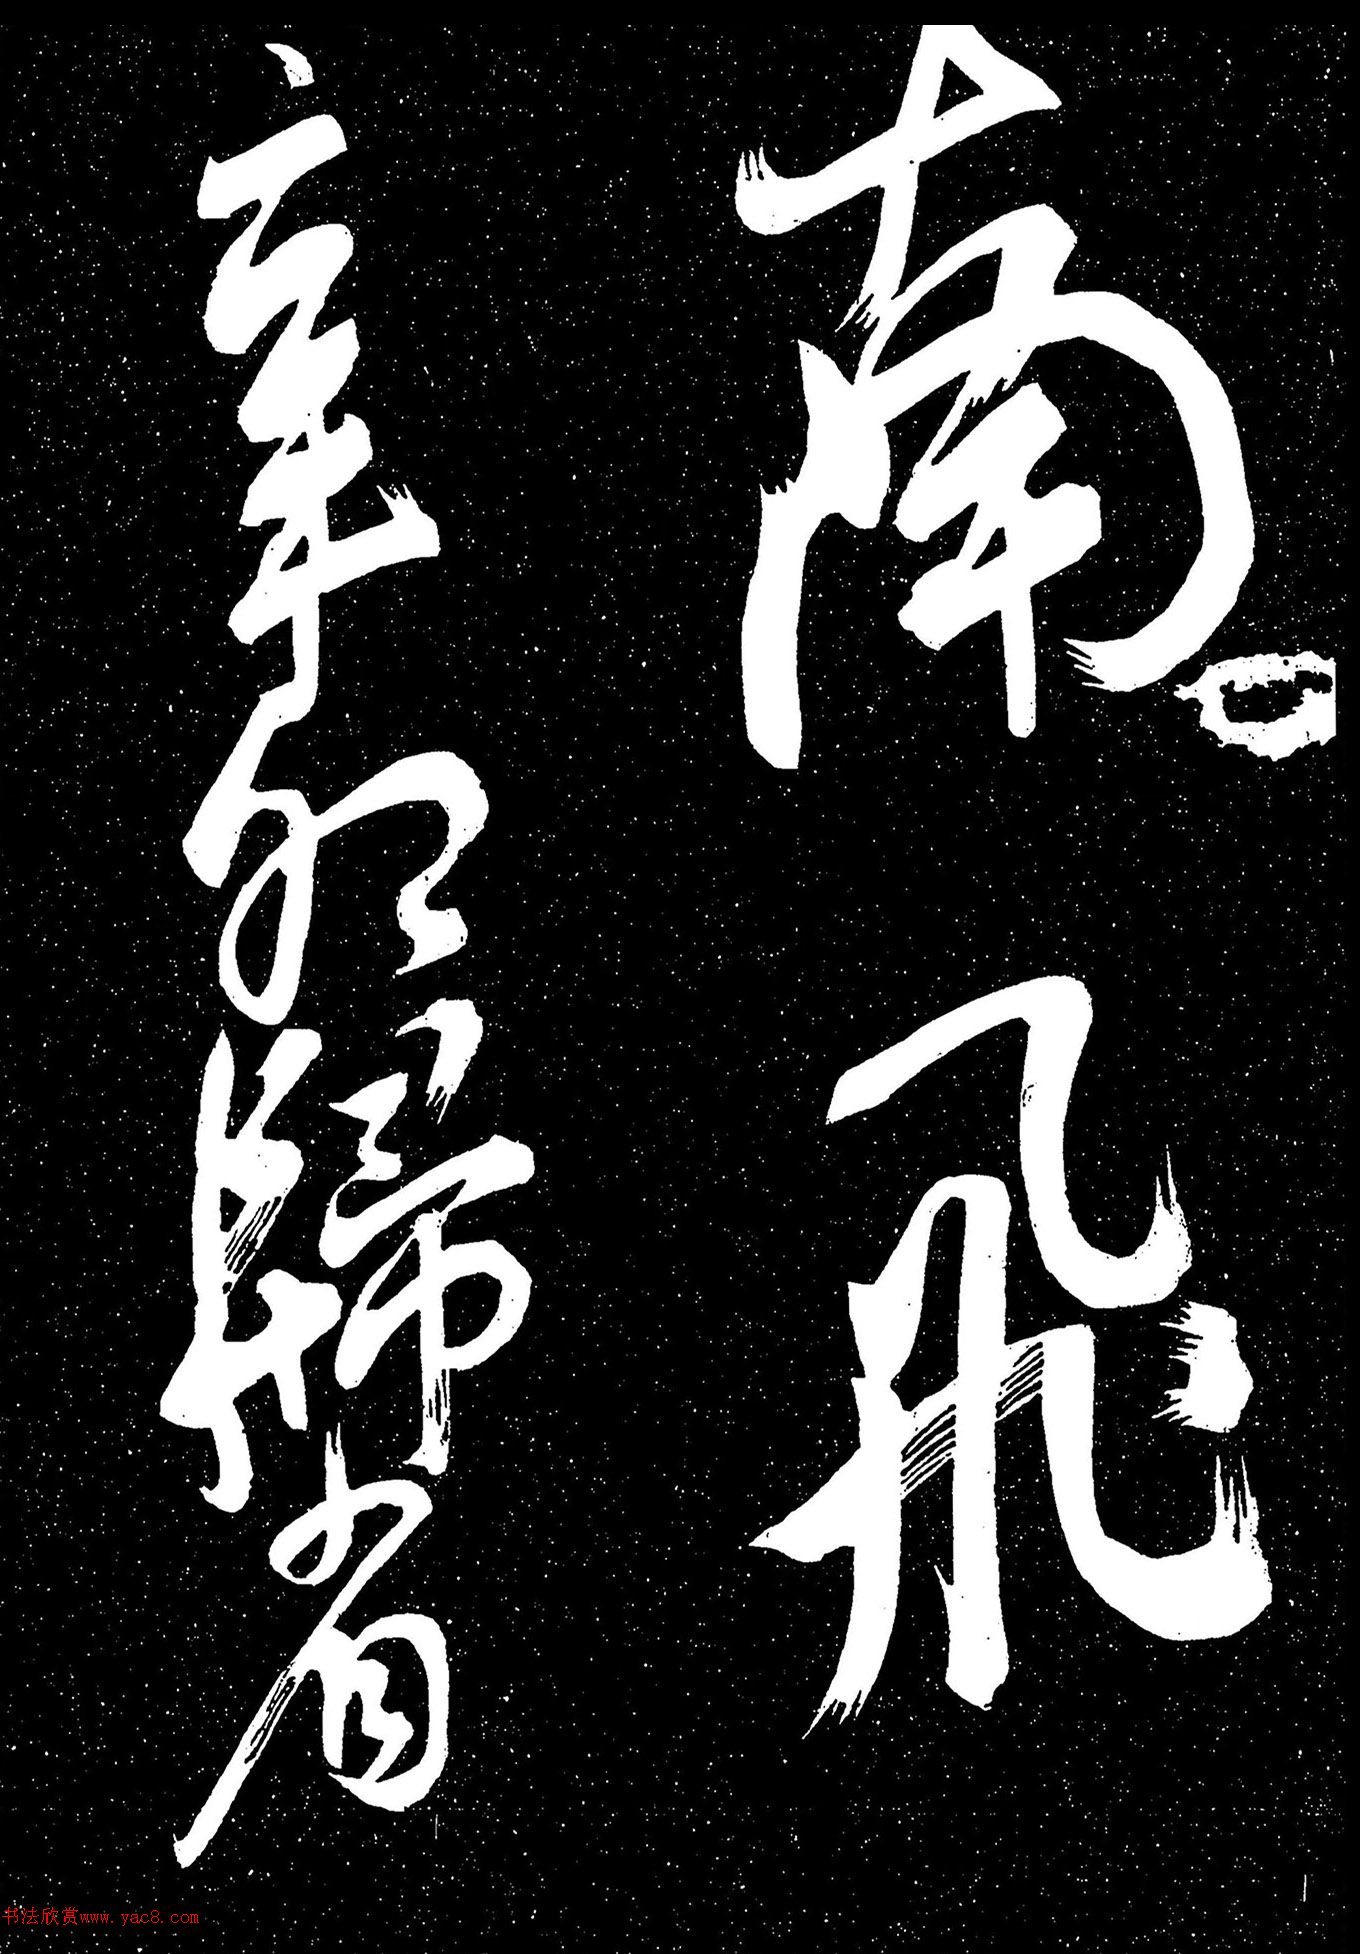 南飛
辛卯歸省
书法欣赏www.yac8.com